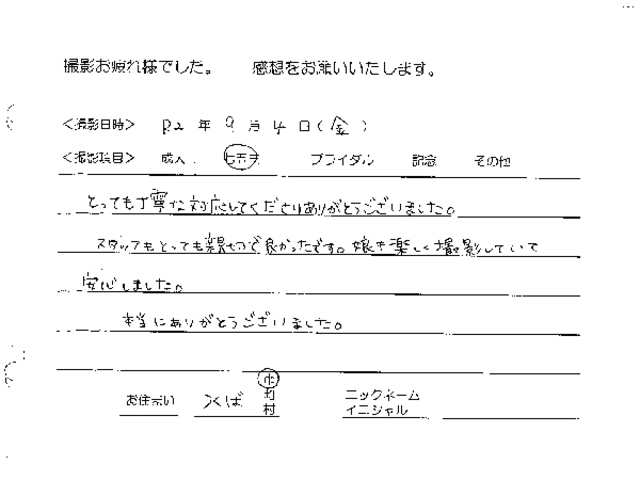 撮影お疲れ様でした。 感想をお願いいたします。
<撮影日時> R2 年 9 月 4 日(金)
<撮影項目> 成人 七五三 ブライダル 記念 その他
とっても丁寧な対応してくださりありがとうございました。
スタッフもとっても親切で良かったです。娘も楽しく撮影していて
安心しました。
本当にありがとうございました。
お住まい つくば 市 町 村 ニックネーム イニシャル